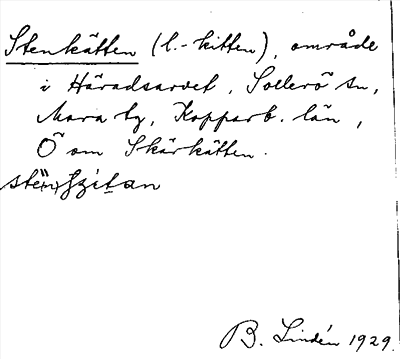 Stenkätten (l.-kitten), område
i Häradsarvet, Sollerö sn,
Mora tg, Kopparb. län,
Ö om Skärkätten.
B. Lindén 1929.